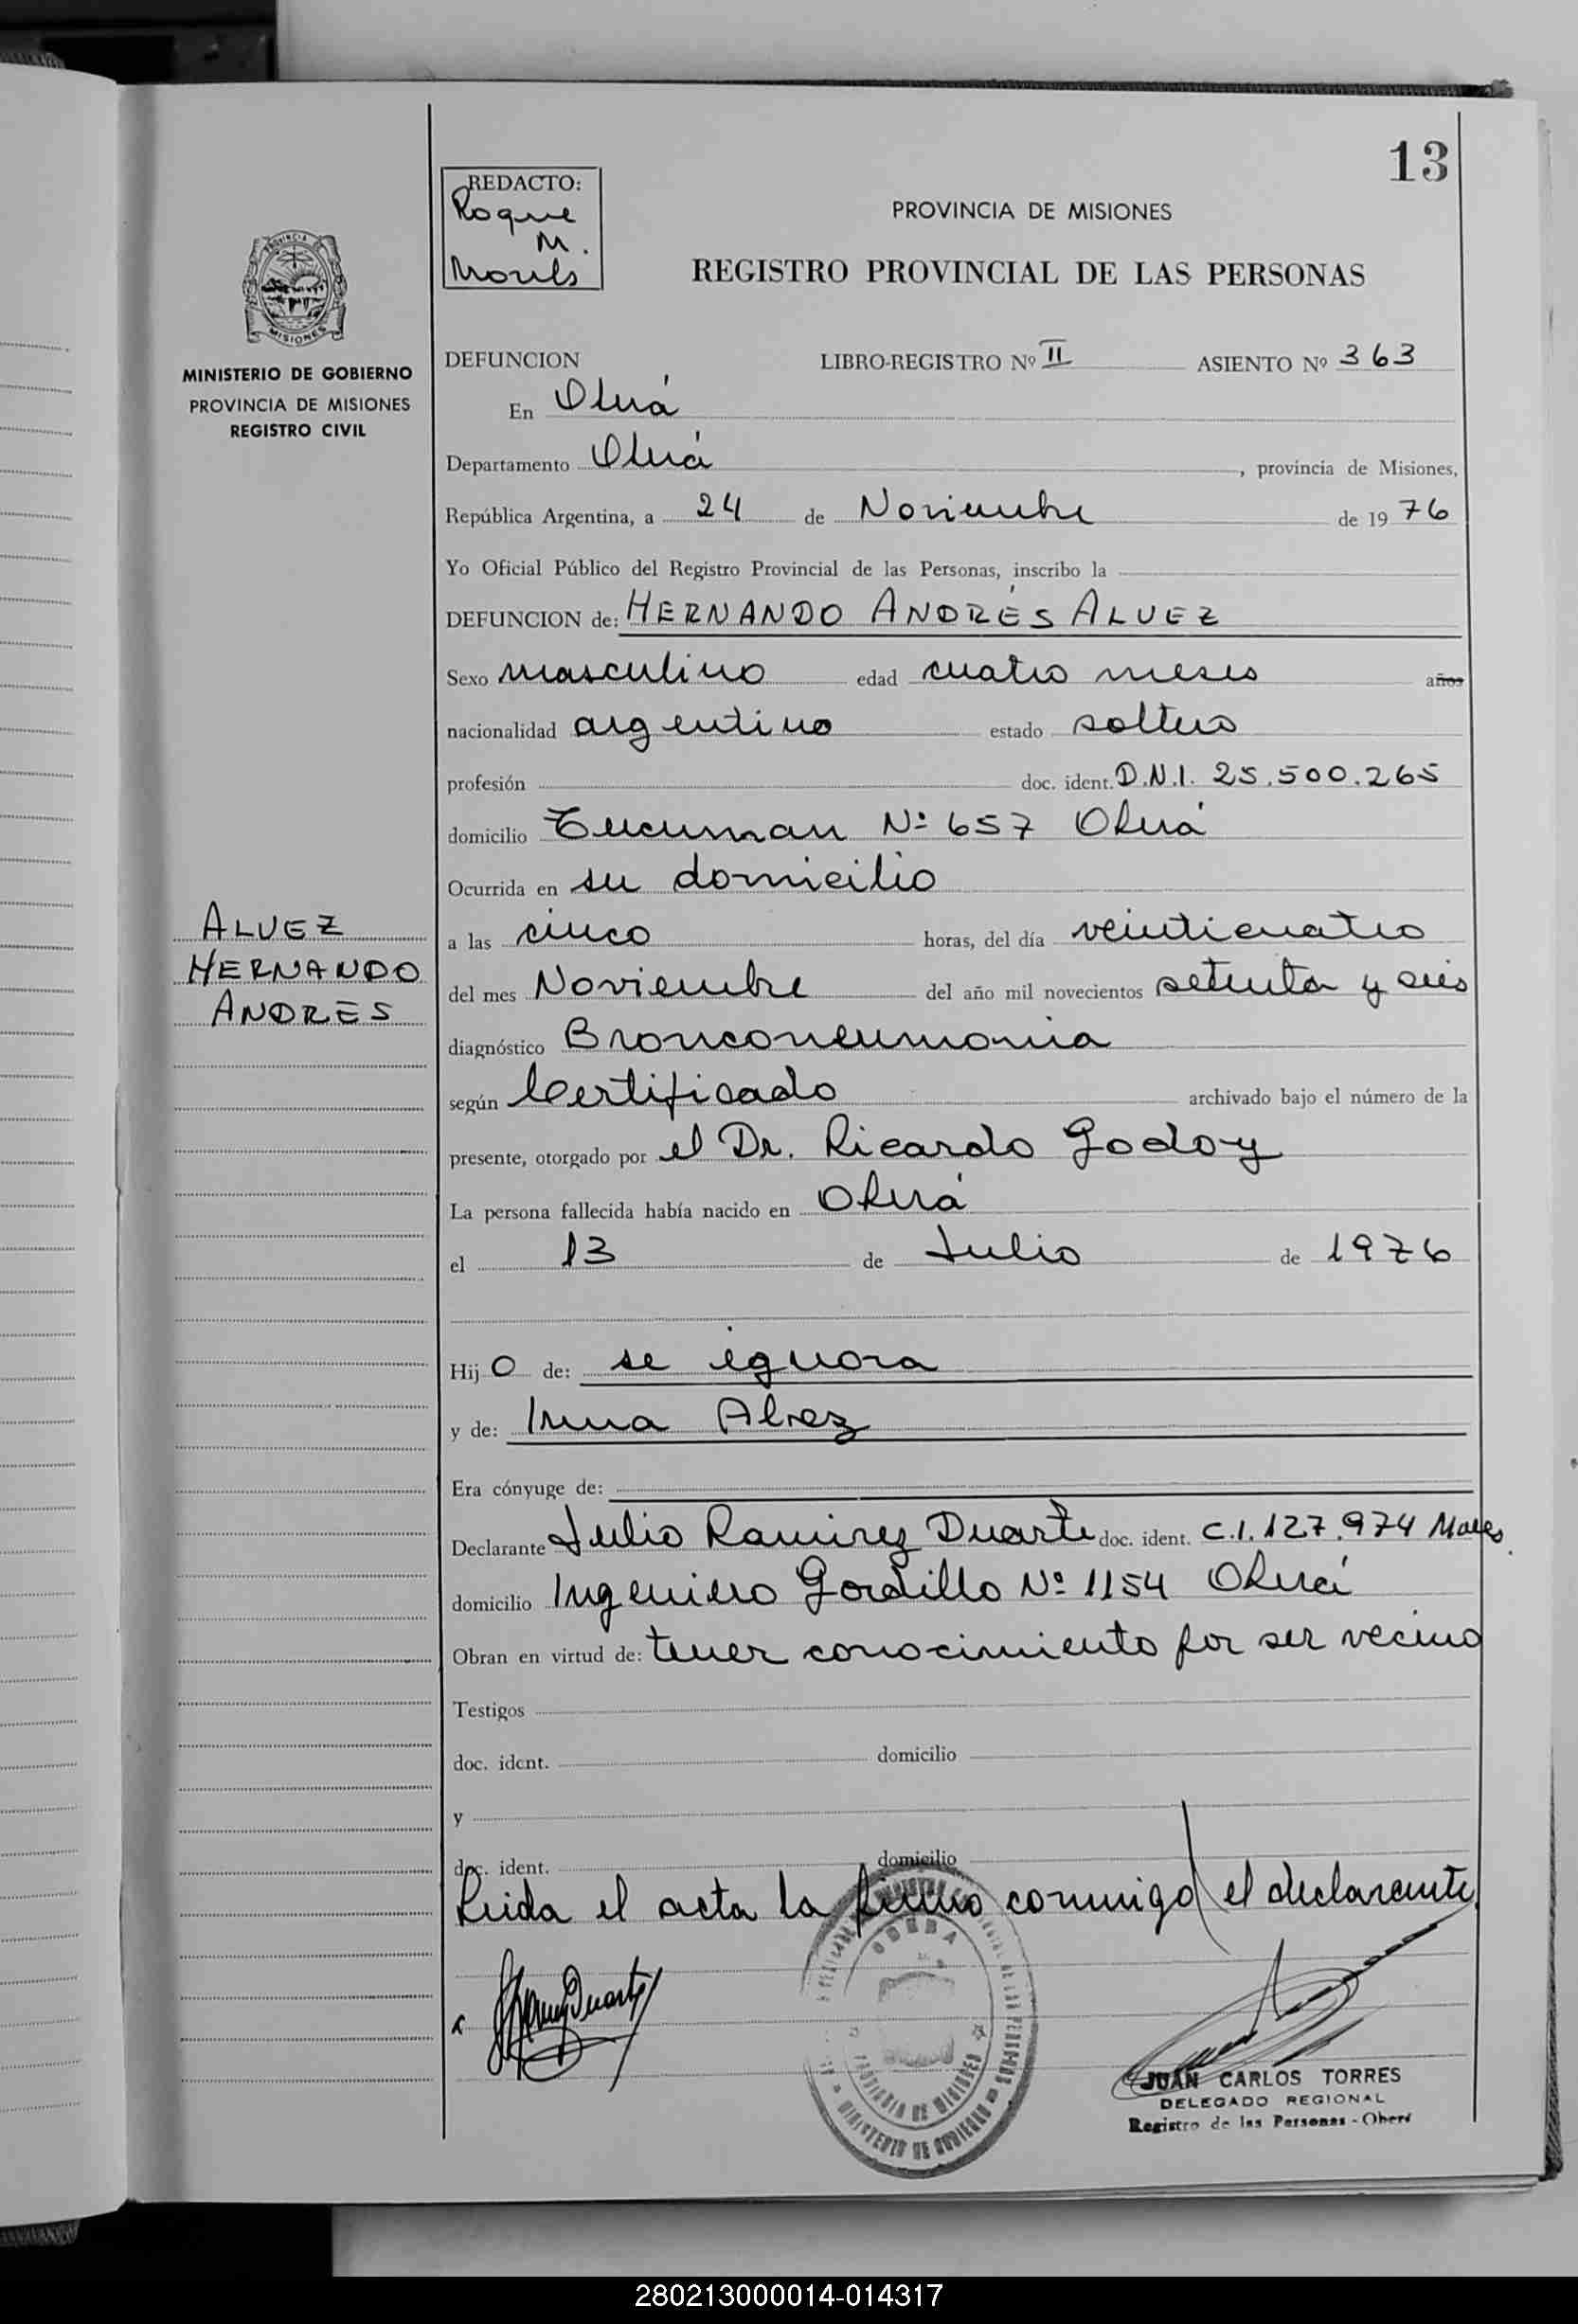 13
REDACTO:
Roque
M.
PROVINCIA DE MISIONES
REGISTRO PROVINCIAL DE LAS PERSONAS
MISIONES
MINISTERIO DE GOBIERNO
PROVINCIA DE MISIONES
REGISTRO CIVIL
DEFUNCION LIBRO-REGISTRO Nº II ASIENTO Nº 363
En Oberá
Departamento Oberá, provincia de Misiones,
República Argentina, a 24 de Noviembre de 1976
Yo Oficial Público del Registro Provincial de las Personas, inscribo la
DEFUNCION de: HERNANDO ANDRÉS ALVEZ
Sexo masculino edad cuatro meses años
nacionalidad argentino estado soltero
profesión doc. ident. D.N.I. 25.500.265
domicilio Tucuman Nº 657 Oberá
Ocurrida en su domicilio
a las cinco horas, del día veinticuatro
del mes Noviembre del año mil novecientos setenta y seis
diagnóstico Bronconeumonia
según Certificado archivado bajo el número de la
presente, otorgado por el Dr. Ricardo Godoy
La persona fallecida había nacido en Oberá
el 13 de Julio de 1976
Hijo de: se ignora
y de: Irma Alvez
Era cónyuge de:
Declarante Julio Ramirez Duarte doc. ident. C.I. 127.974 Mnes.
domicilio Ingeniero Gordillo Nº 1154 Oberá
Obran en virtud de: tener conocimiento por ser vecino
Testigos
doc. ident. domicilio
y
doc. ident. domicilio
Leida el acta la firma conmigo el declarante
ALVEZ
HERNANDO
ANDRES
OBERA
PROVINCIA DE MISIONES
MINISTERIO DE GOBIERNO
JUAN CARLOS TORRES
DELEGADO REGIONAL
Registro de las Personas - Oberá
280213000014-014317